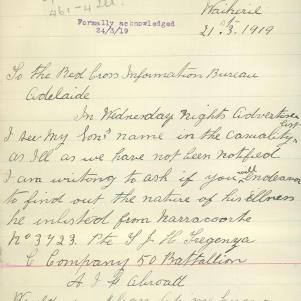 461-4211
Formally acknowledged
24/3/19
Waikerie
21st. 3. 1919
To the Red Cross Information Bureau
Adelaide
In Wednesday Nights Advertiser
List
I see My Son's name in the Casualty
as Ill as we have not been notified
I am writing to ask if you will endeavour
to find out the nature of his illness
he enlisted from Narracoorte
No 3723. Pte S J H Tregenza
C Company 50 Battallion
A I F Abroad